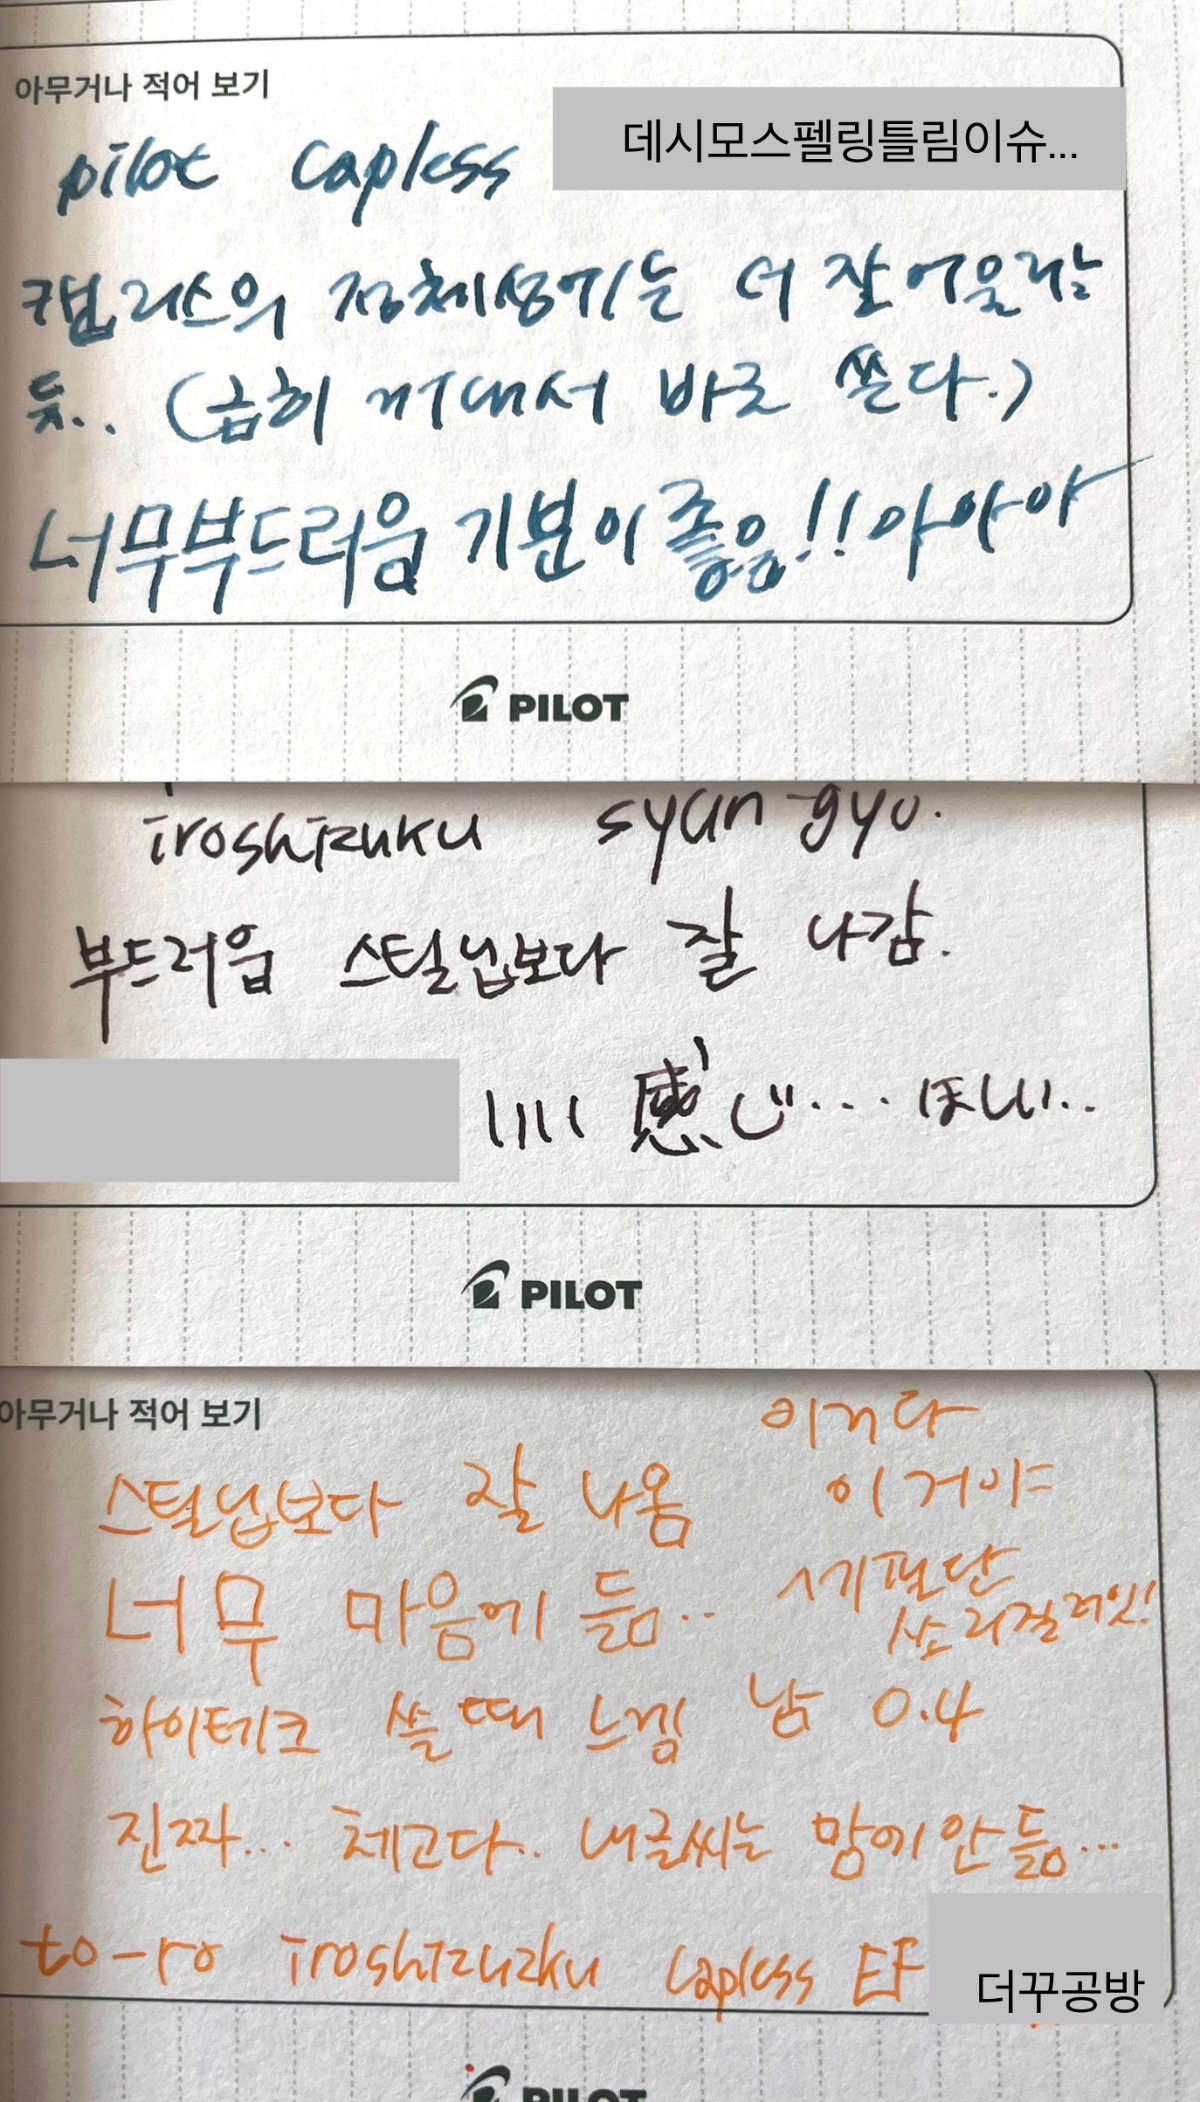 아무거나 적어 보기
데시모스펠링틀림이슈...
pilot capless
캡리스의 정체성에는 더 잘 어울리는
듯.. (급히 꺼내서 바로 쓴다.)
너무부드러움 기분이 좋음!! 아아아
PILOT
iroshizuku syun-gyo.
부드러움 스틸닙보다 잘 나감.
いい 感じ... ほしい..
PILOT
아무거나 적어 보기
이거다
스틸닙보다 잘 나옴 이거야
너무 마음에 듦.. 세필단
소리질러잇!
하이테크 쓸 때 느낌 남 0.4
진짜... 체고다.. 내글씨는 맘에안듦...
to-ro iroshizuzku capless EF
더꾸공방
PILOT